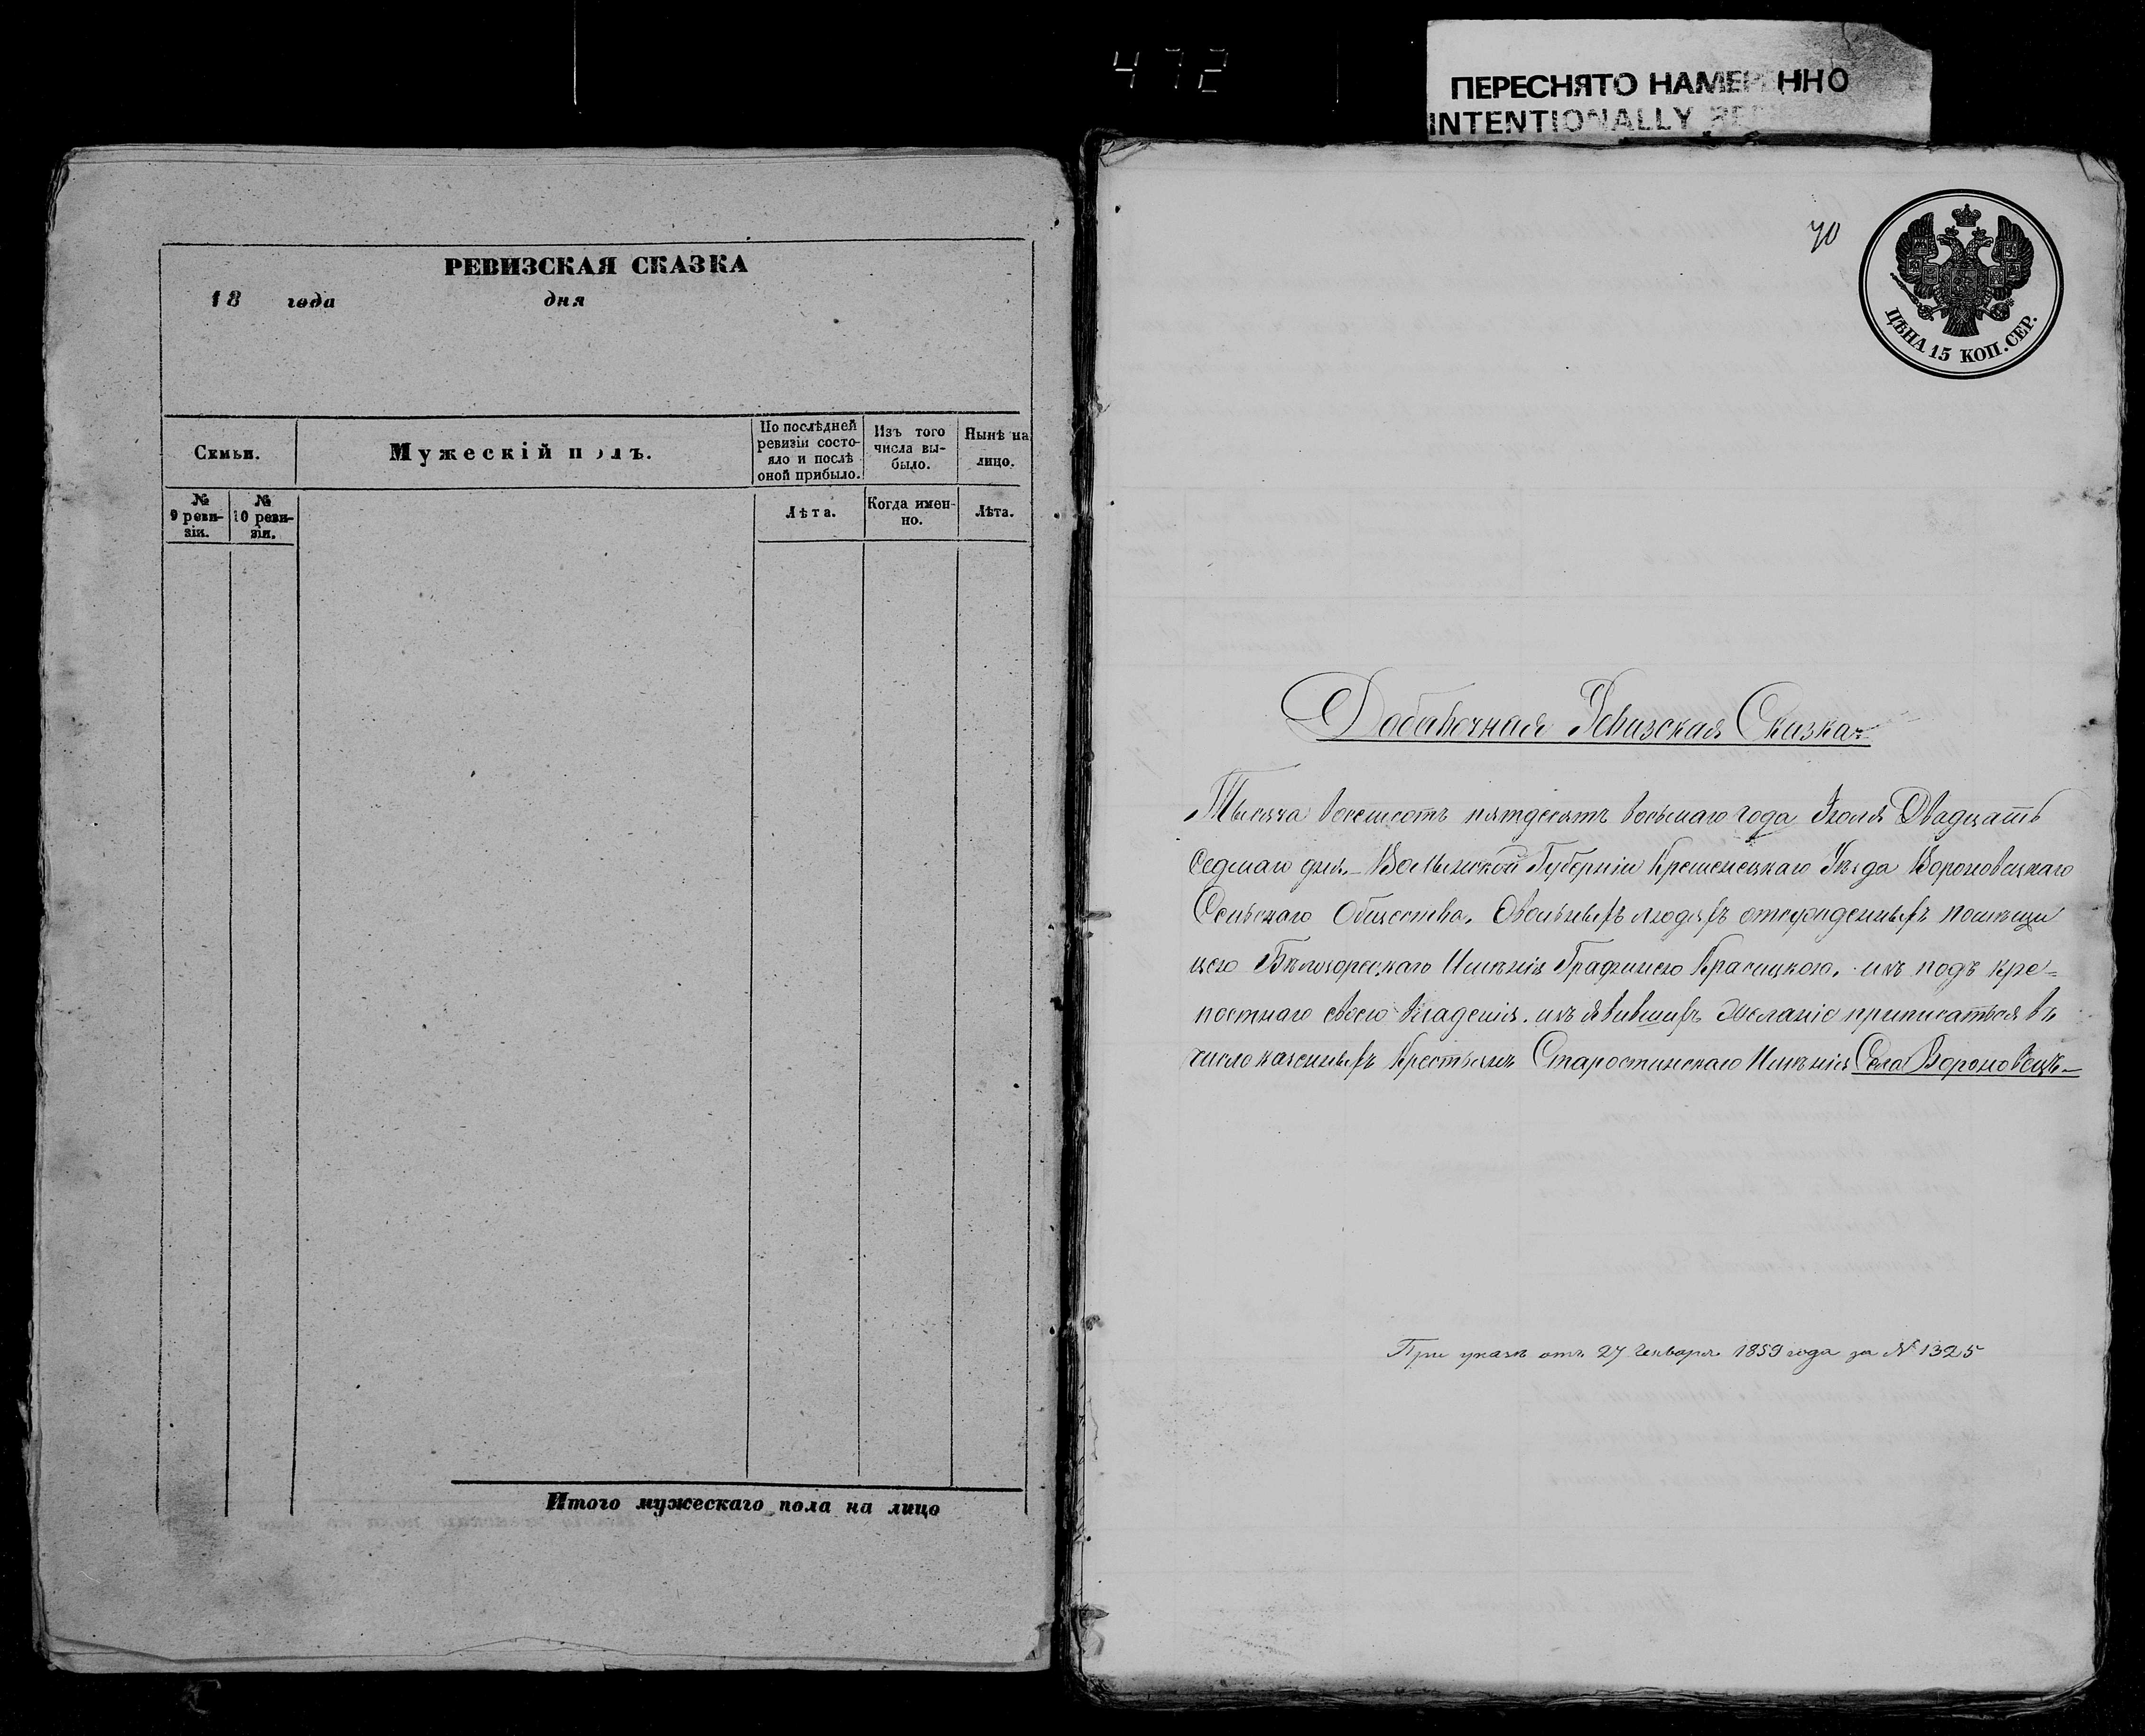 472
ПЕРЕСНЯТО НАМЕРЕННО
INTENTIONALLY RE
РЕВИЗСКАЯ СКАЗКА
18 года дня
Семьи.
Мужескій полъ.
По послѣдней ревизіи состояло и послѣ оной прибыло.
Изъ того числа выбыло.
Нынѣ на лицо.
№ 9 ревизіи.
№ 10 ревизіи.
Лѣта.
Когда именно.
Лѣта.
Итого мужескаго пола на лицо
70
ЦѢНА 15 КОП. СЕР.
Добавочная Ревизская Сказка
Тысяча восемсотъ пятдесятъ восьмаго года Іюля Двадцать
седмаго дня. Волынской Губерніи Кременецкаго Уѣзда Вороновецкаго
Сельскаго Общества, О вольныхъ людяхъ отсужденныхъ помѣщи
цею Бѣлозорскаго Имѣнія Графинею Красицкою, изъ подъ кре=
постнаго своего владенія. изъявившихъ желаніе приписаться въ
число казенныхъ Крестьянъ Старостинскаго Имѣнія Села Вороновецъ
При указѣ отъ 27 Генваря 1859 года за № 1325